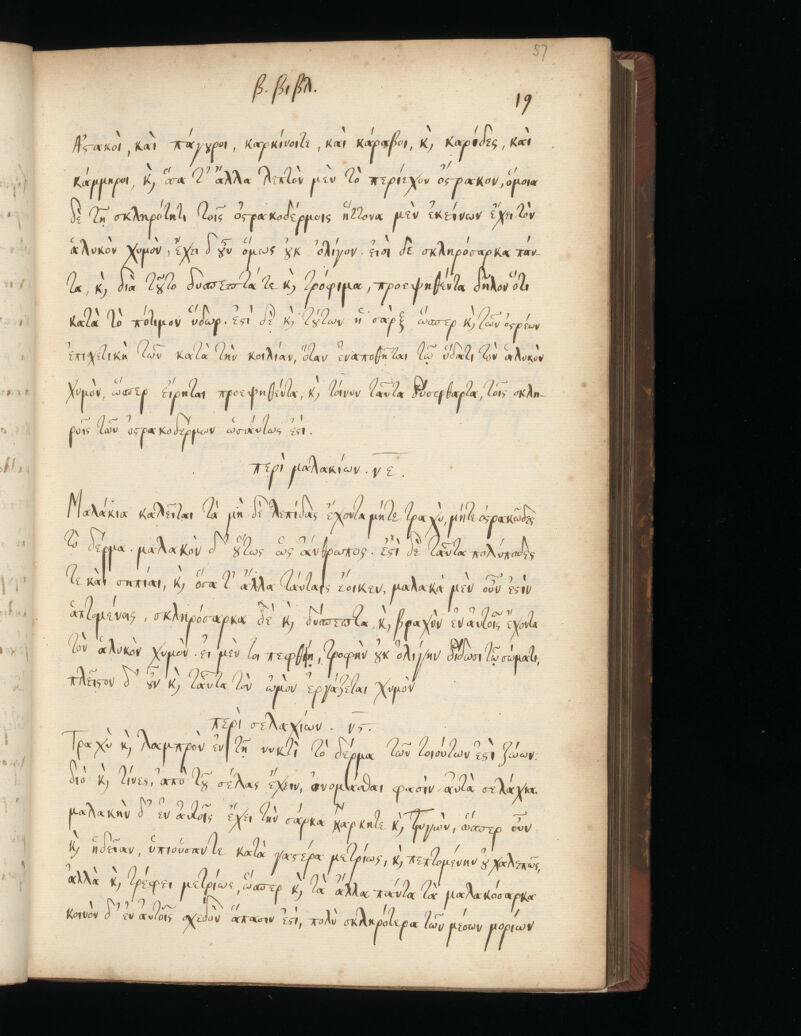 57
β. βιβλ.
19
Ἀστακοὶ, καὶ πάγουροι, καρκίνοιτε, καὶ κάραβοι, κ̀ καρίδες, καὶ
κάμμηροι, κ̀ ὅσα τ' ἄλλα λεπτὸν μὲν τὸ περιέχον ὄστρακον, ὅμοια
δὲ τῇ σκληρότητι τοῖς ὀστρακοδέρμοις ἥττονα μὲν ἐκείνων ἔχει τὸν
ἁλυκὸν χυμὸν, ἔχει δ' οὖν ὅμως οὐκ ὀλίγον. εἰσὶ δὲ σκληρόσαρκα πάν-
τα, κ̀ διὰ τοῦτο δύσπεπτά τε κ̀ τρόφιμα, προεψηθέντα δηλονότι
κατὰ τὸ πότιμον ὕδωρ. ἐστὶ δὲ κ̀ τούτων ἡ σὰρξ ὥσπερ κ̀ τῶν ὀστρέων
ἐπισχετικὴ τῶν κατὰ τὴν κοιλίαν, ὅταν ἐναποθῆται τῷ ὕδατι τὸν ἁλυκὸν
χυμὸν, ὥσπερ εἴρηται προεψηθέντα, κ̀ τοίνυν ταῦτα δύσφθαρτα, τοῖς σκλη-
ροῖς τῶν ὀστρακοδέρμων ὡσαύτως ἐστί.
περὶ μαλακίων. νε.
Μαλάκια καλεῖται τὰ μὴ δὲ λεπίδας ἔχοντα μήτε τραχὺ, μήτε ὀστρακῶδες
τὸ δέρμα. μαλακὸν δ' οὕτως ὡς ἄνθρωπος. ἐστὶ δὲ ταῦτα πολύποδες
τε καὶ σηπίαι, κ̀ ὅσα τ' ἄλλα ταύταις ἔοικεν, μαλακὰ μὲν οὖν ἐστὶν
ἁπτομένοις, σκληρόσαρκα δὲ κ̀ δύσπεπτα κ̀ βραχὺν ἐν αὑτοῖς ἔχοντα
τὸν ἁλυκὸν χυμὸν. εἰ μέν τοι πεφθῇ, τροφὴν οὐκ ὀλίγην δίδωσι τῷ σώματι,
πλεῖστον δ' οὖν κ̀ ταῦτα τὸν ὠμὸν ἐργάζεται χυμὸν
περὶ σελαχίων. νϛ.
Τραχὺ κ̀ λαμπρὸν ἐν τῇ νυκτὶ τὸ δέρμα τῶν τοιούτων ἐστὶ ζώων.
διὸ κ̀ τινες, ἀπὸ τοῦ σέλας ἔχειν, ὀνομάσθαι φασὶν αὐτὰ σελάχια.
μαλακὴν δ' ἐν αὑτοῖς ἔχει τὴν σάρκα νάρκητε κ̀ τρυγὼν, ὥσπερ οὖν
κ̀ ἡδεῖαν, ὑπιοῦσαν τε κατὰ γαστέρα μετρίως, κ̀ πεπτομένην οὐ χαλεπῶς,
ἀλλὰ κ̀ τρέφει μετρίως, ὥσπερ κ̀ τὰ ἄλλα πάντα τὰ μαλακόσαρκα
κοινὸν δ' ἐν αὐτοῖς σχεδὸν ἅπασιν ἐστὶ, πολὺ σκληρότερα τῶν μέσων μορίων